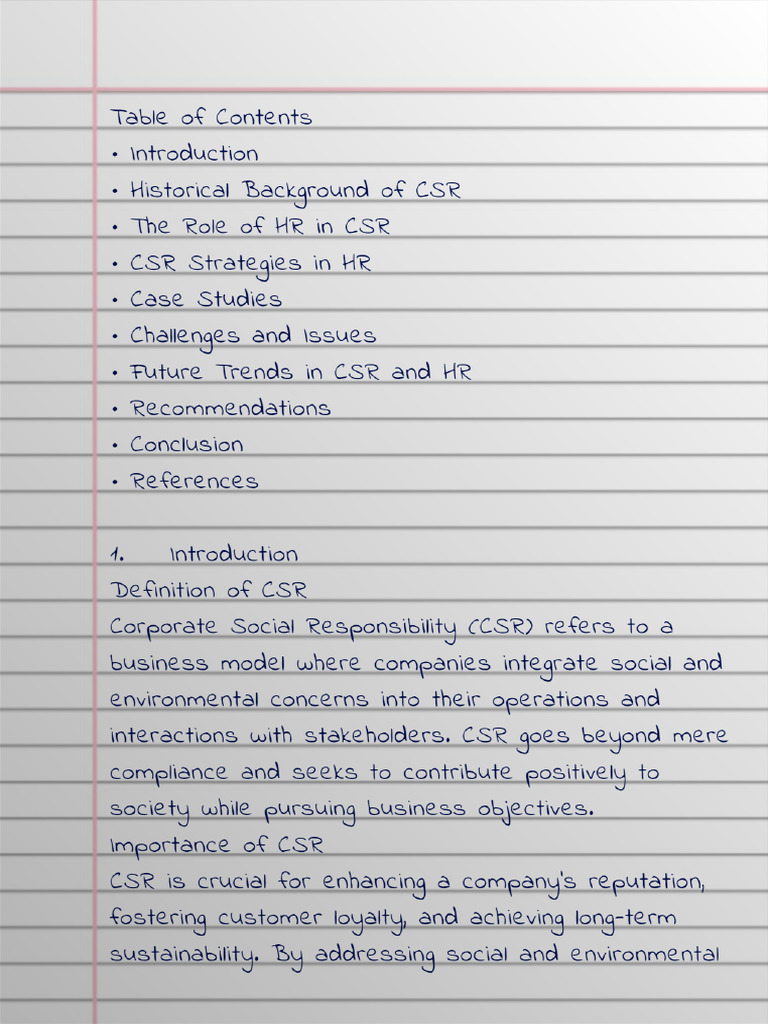 Table of Contents
• Introduction
• Historical Background of CSR
• The Role of HR in CSR
• CSR Strategies in HR
• Case Studies
• Challenges and Issues
• Future Trends in CSR and HR
• Recommendations
• Conclusion
• References
1. Introduction
Definition of CSR
Corporate Social Responsibility (CSR) refers to a
business model where companies integrate social and
environmental concerns into their operations and
interactions with stakeholders. CSR goes beyond mere
compliance and seeks to contribute positively to
society while pursuing business objectives.
Importance of CSR
CSR is crucial for enhancing a company's reputation,
fostering customer loyalty, and achieving long-term
sustainability. By addressing social and environmental